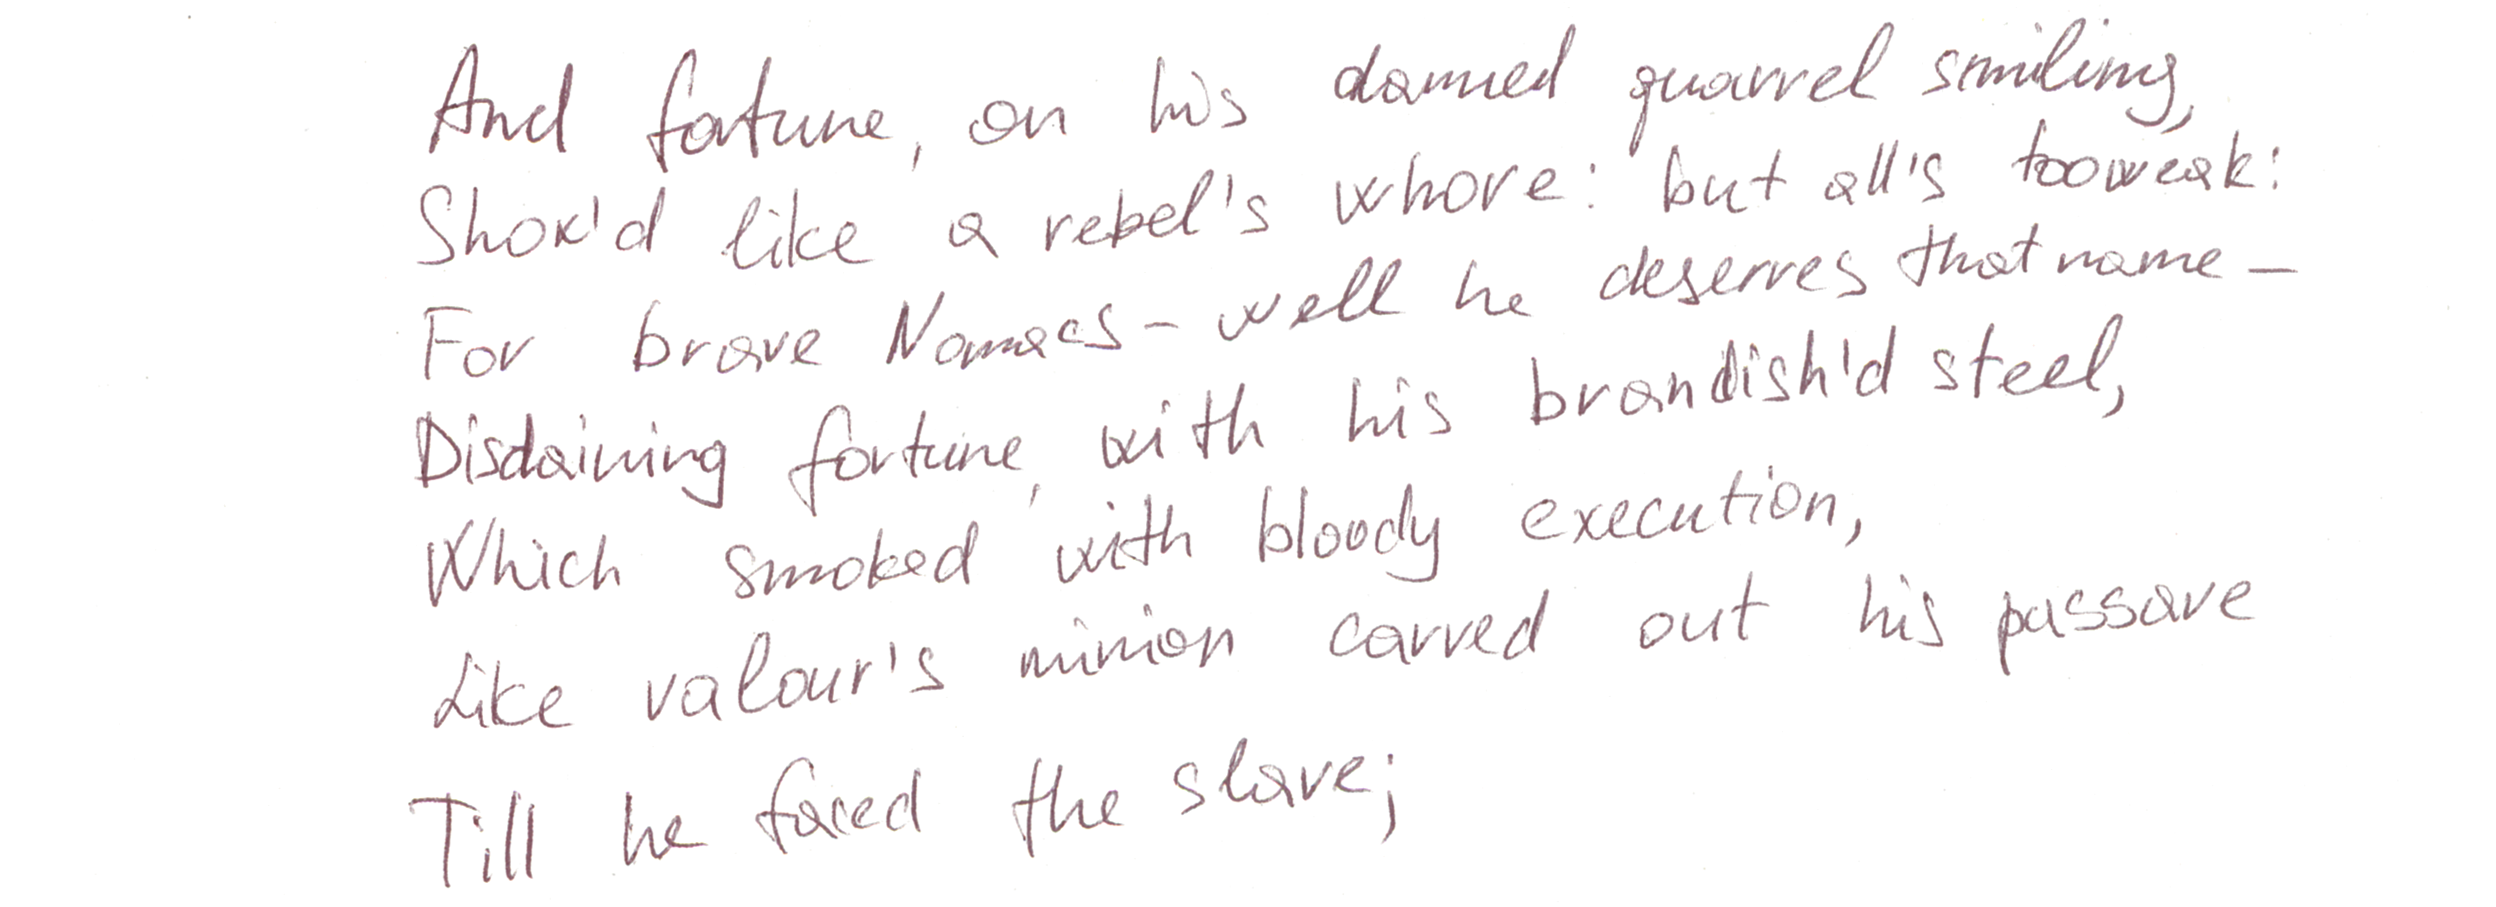 And fortune, on his damned quarrel smiling,
Show'd like a rebel's whore: but all's too weak:
For brave Nomaes - well he deserves that name -
Disdaining fortune, with his brandish'd steel,
Which smoked with bloody execution,
Like valour's minion carved out his passave
Till he faced the slave;